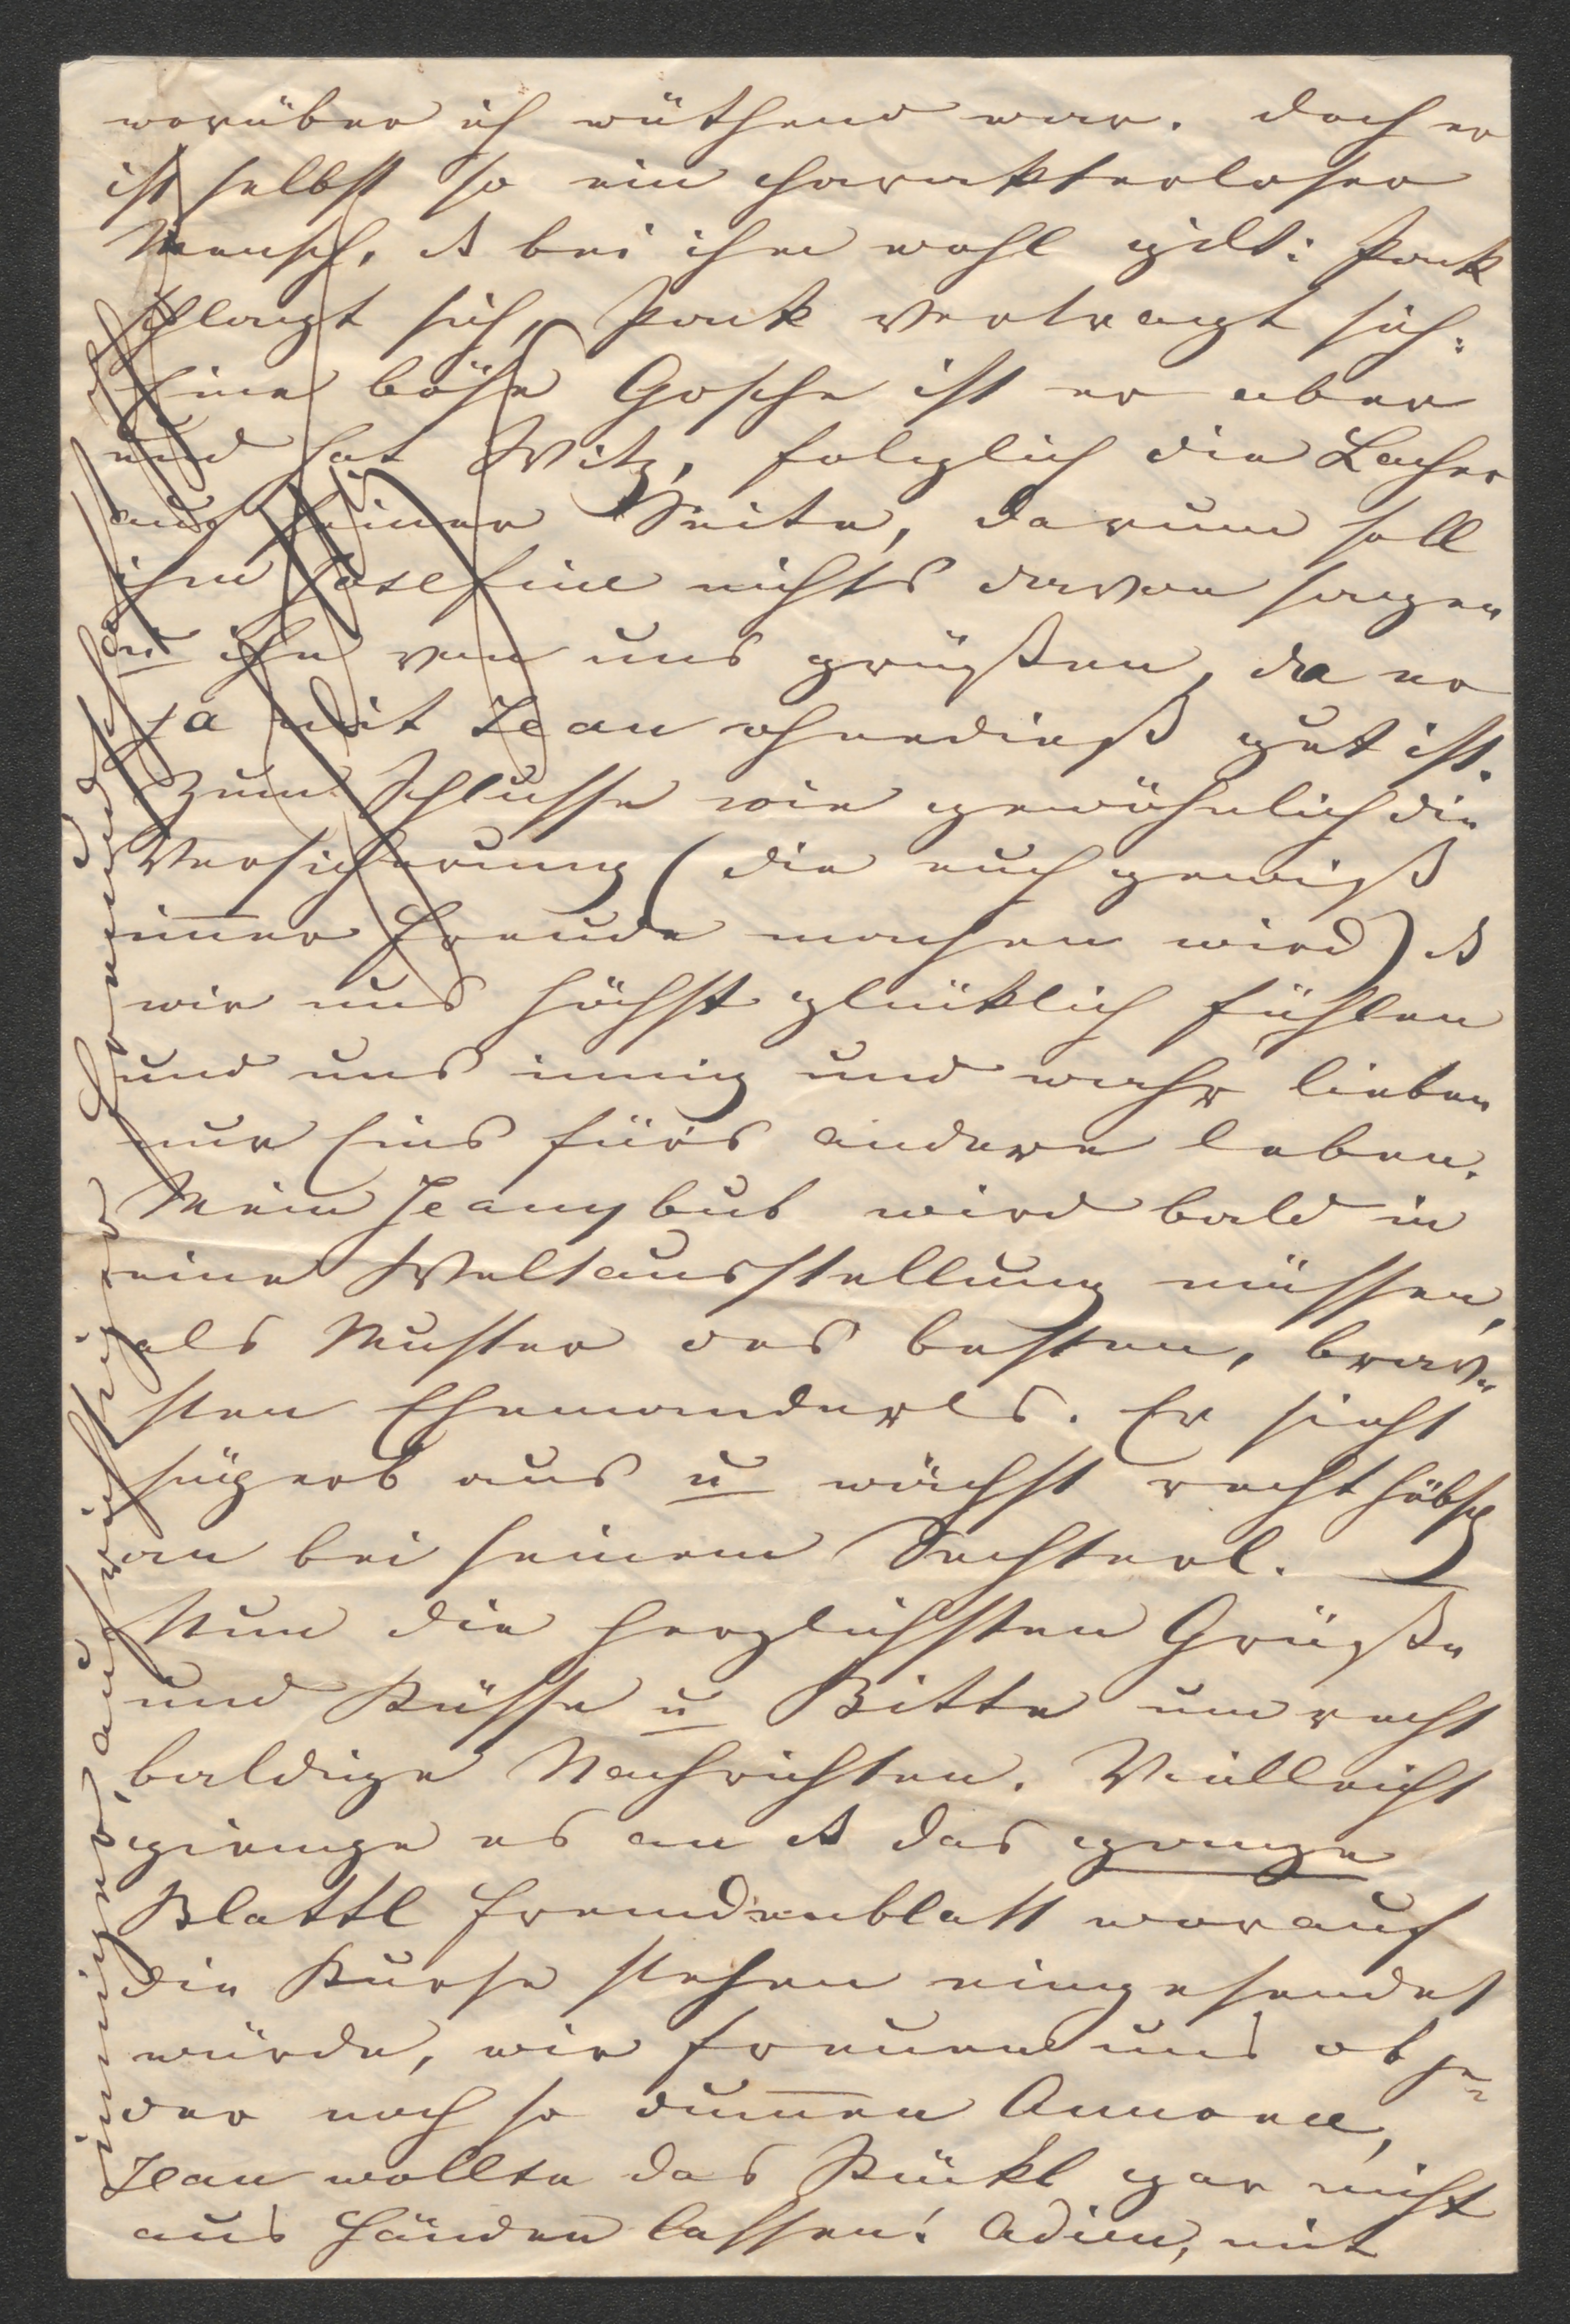 worüber ich wüthend war. Doch er
ist selbst so ein charakterloser
Mensch, dß bei ihm wohl gilt: Pack
schlagt sich, Pack vertragt sich.
Eine böse Gosche ist er aber
und hat Witz, folglich die Lacher
auf seiner Seite, darum soll
ihm Josefine nichts davon sagen
u ihn von uns grüßen, da er
ja mit Jean ohnedieß gut ist.
Zum Schlusse wie gewöhnlich die
Versicherung (die euch gewiß
im̄er Freude machen wird) dß
wir uns höchst glücklich fühlen
und uns innig und wahr lieben
nur Eins für's andere leben.
Mein Jeanybub wird bald in
eine Weltausstellung müssen,
als Muster des besten, brav-
sten Ehemanderls. Er sieht
süperb aus u wächst recht hübsch
an bei seinem
Nun die herzlichsten Grüße
und Küsse u Bitte um recht
baldige Nachrichten. Vielleicht
gienge es an dß das ganze
Blattl Fremdenblatt worauf
die Kurse stehen eingesendet
würde, wir freuen uns ob je-
der noch so dum̄en Annonce,
Jean wollte das Stückl gar nicht
aus Händen lassen! Adieu, mit
inniger, aufrichtiger Freundschaft